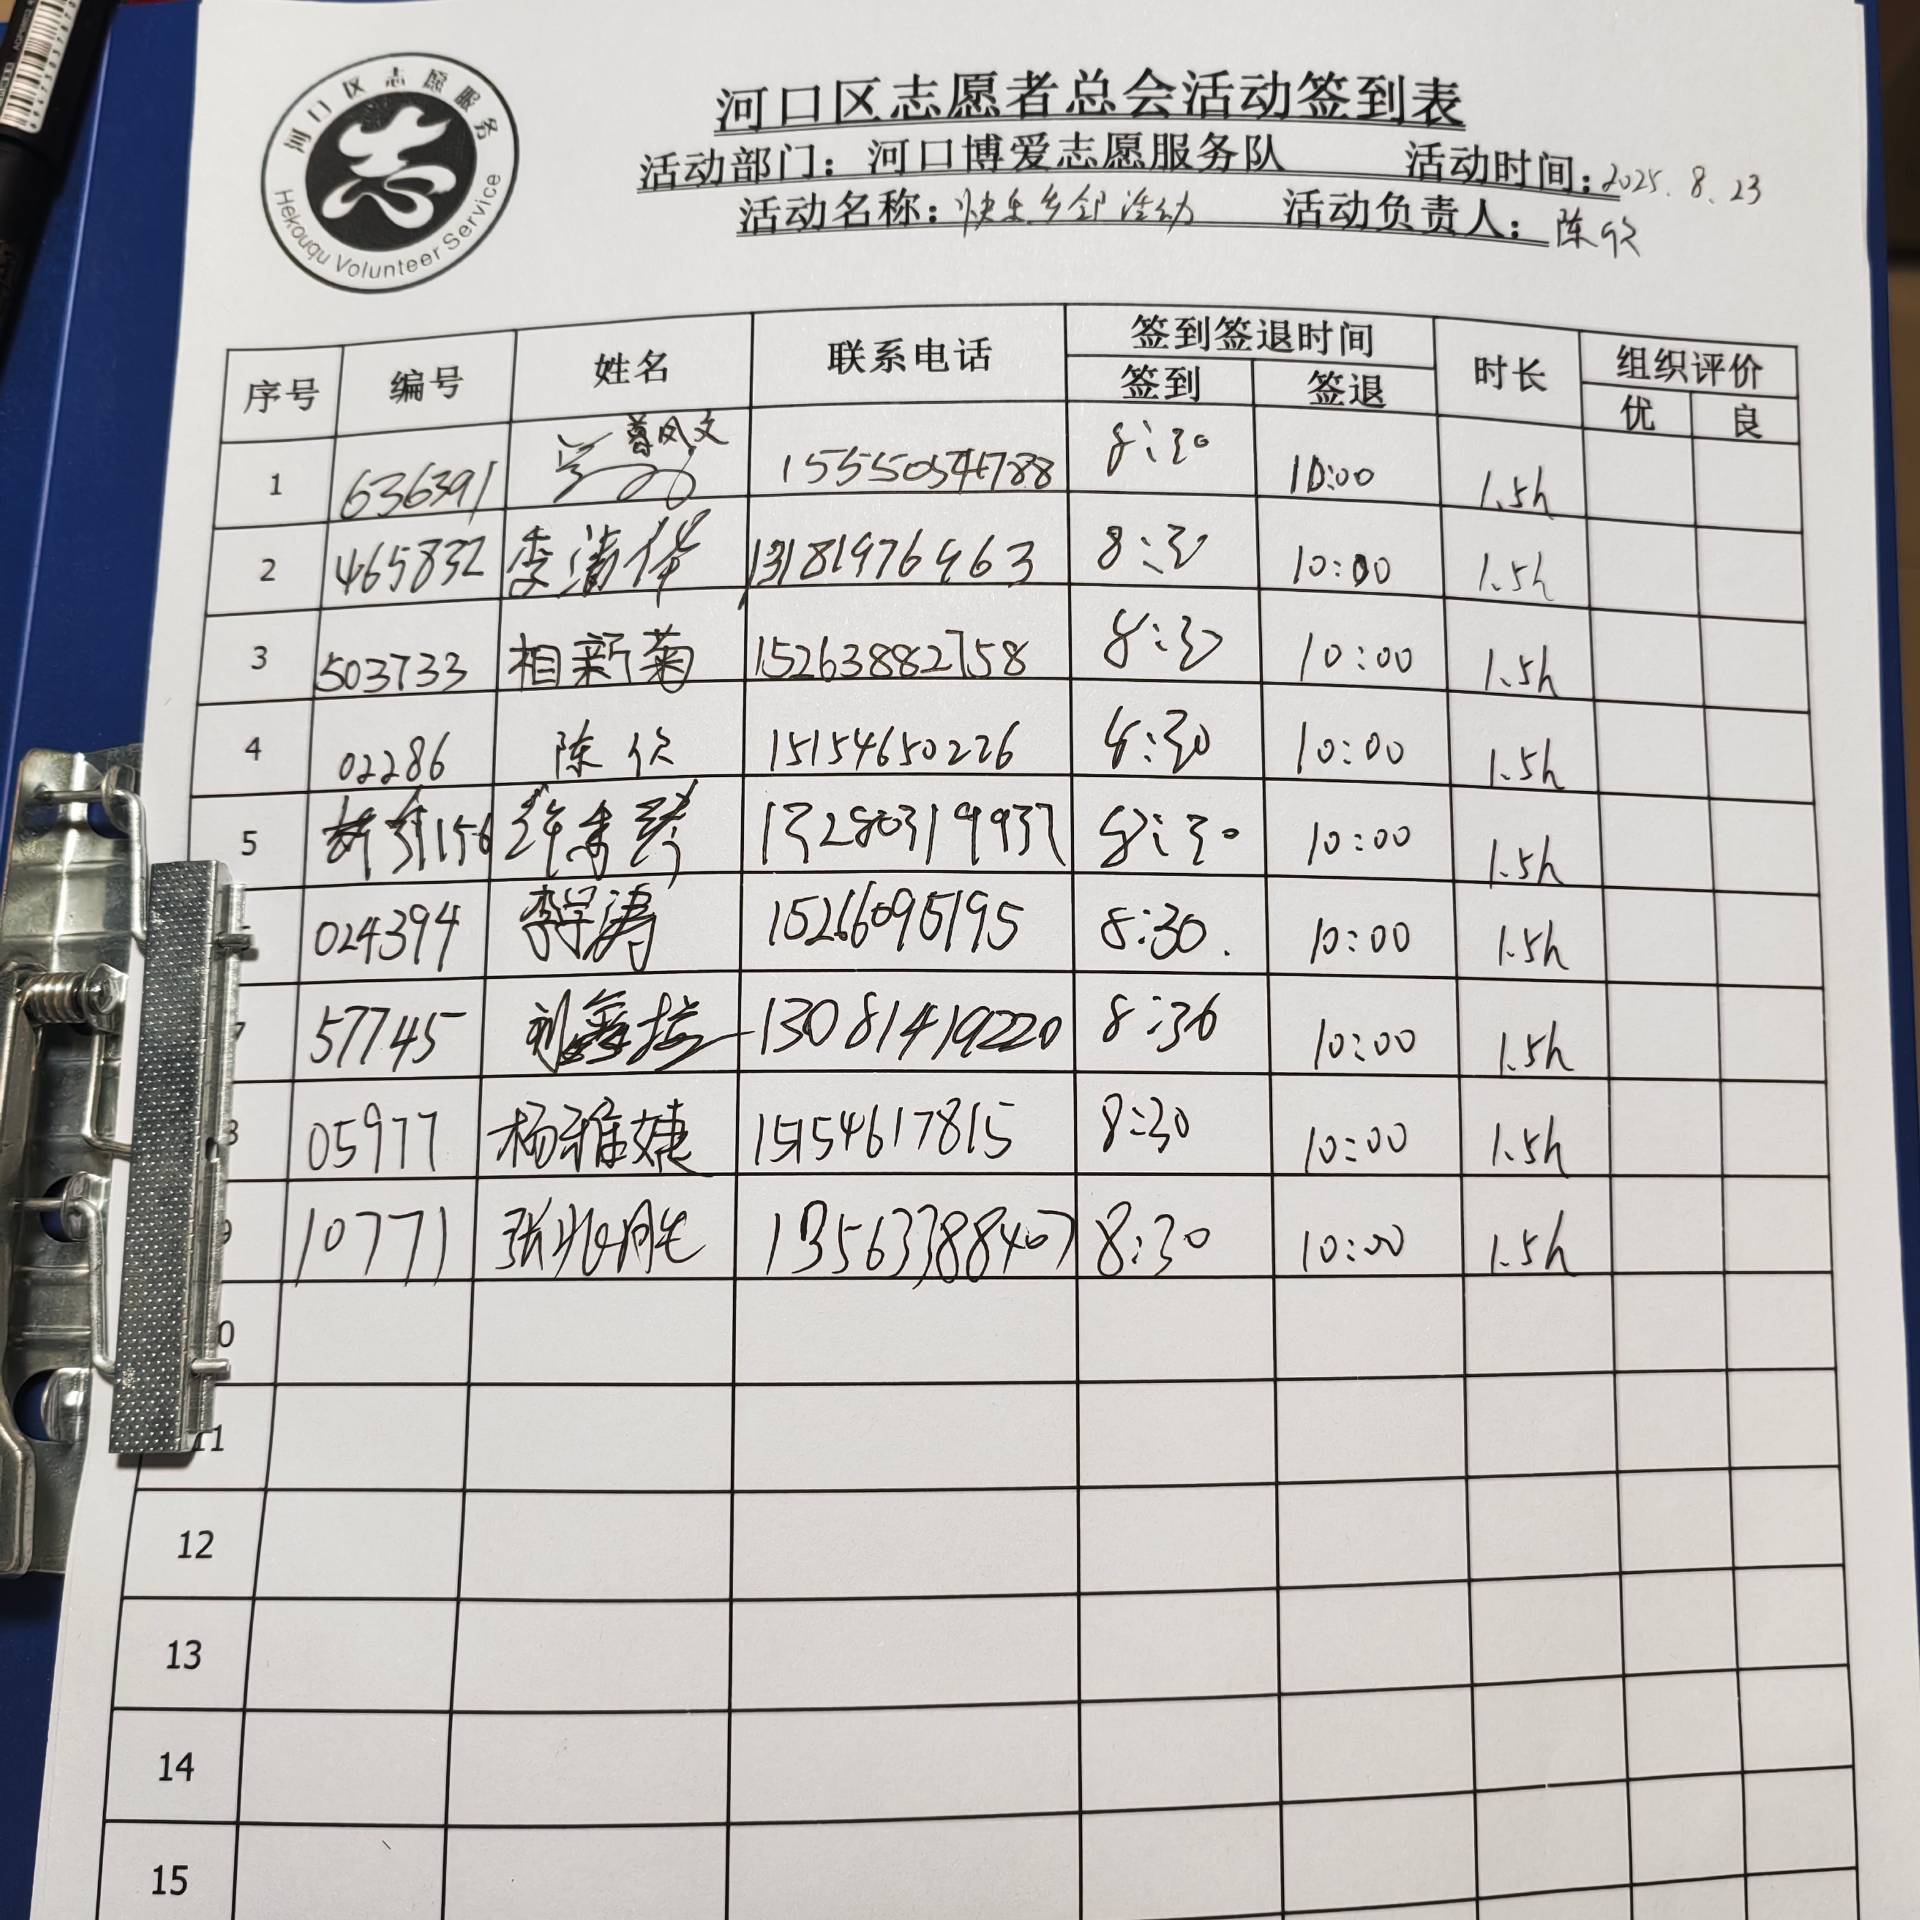 河口区志愿服务
Hekouqu Volunteer Service
河口区志愿者总会活动签到表
活动部门：河口博爱志愿服务队 活动时间：2025.8.23
活动名称：快乐乡邻活动 活动负责人：陈欣
序号 编号 姓名 联系电话 签到签退时间 时长 组织评价
签到 签退 优 良
1 636391 曹凤文 15550544788 8:30 10:00 1.5h
2 465832 李清华 13181976963 8:30 10:00 1.5h
3 503733 相新菊 15263882758 8:30 10:00 1.5h
4 02286 陈欣 15154650226 8:30 10:00 1.5h
5 8:30 10:00 1.5h
024394 李学涛 15266095195 8:30. 10:00 1.5h
7 57745 刘 13081419220 8:36 10:00 1.5h
8 05977 杨雅婕 15154617815 8:30 10:00 1.5h
9 10771 张 13563388407 8:30 10:00 1.5h
0
11
12
13
14
15